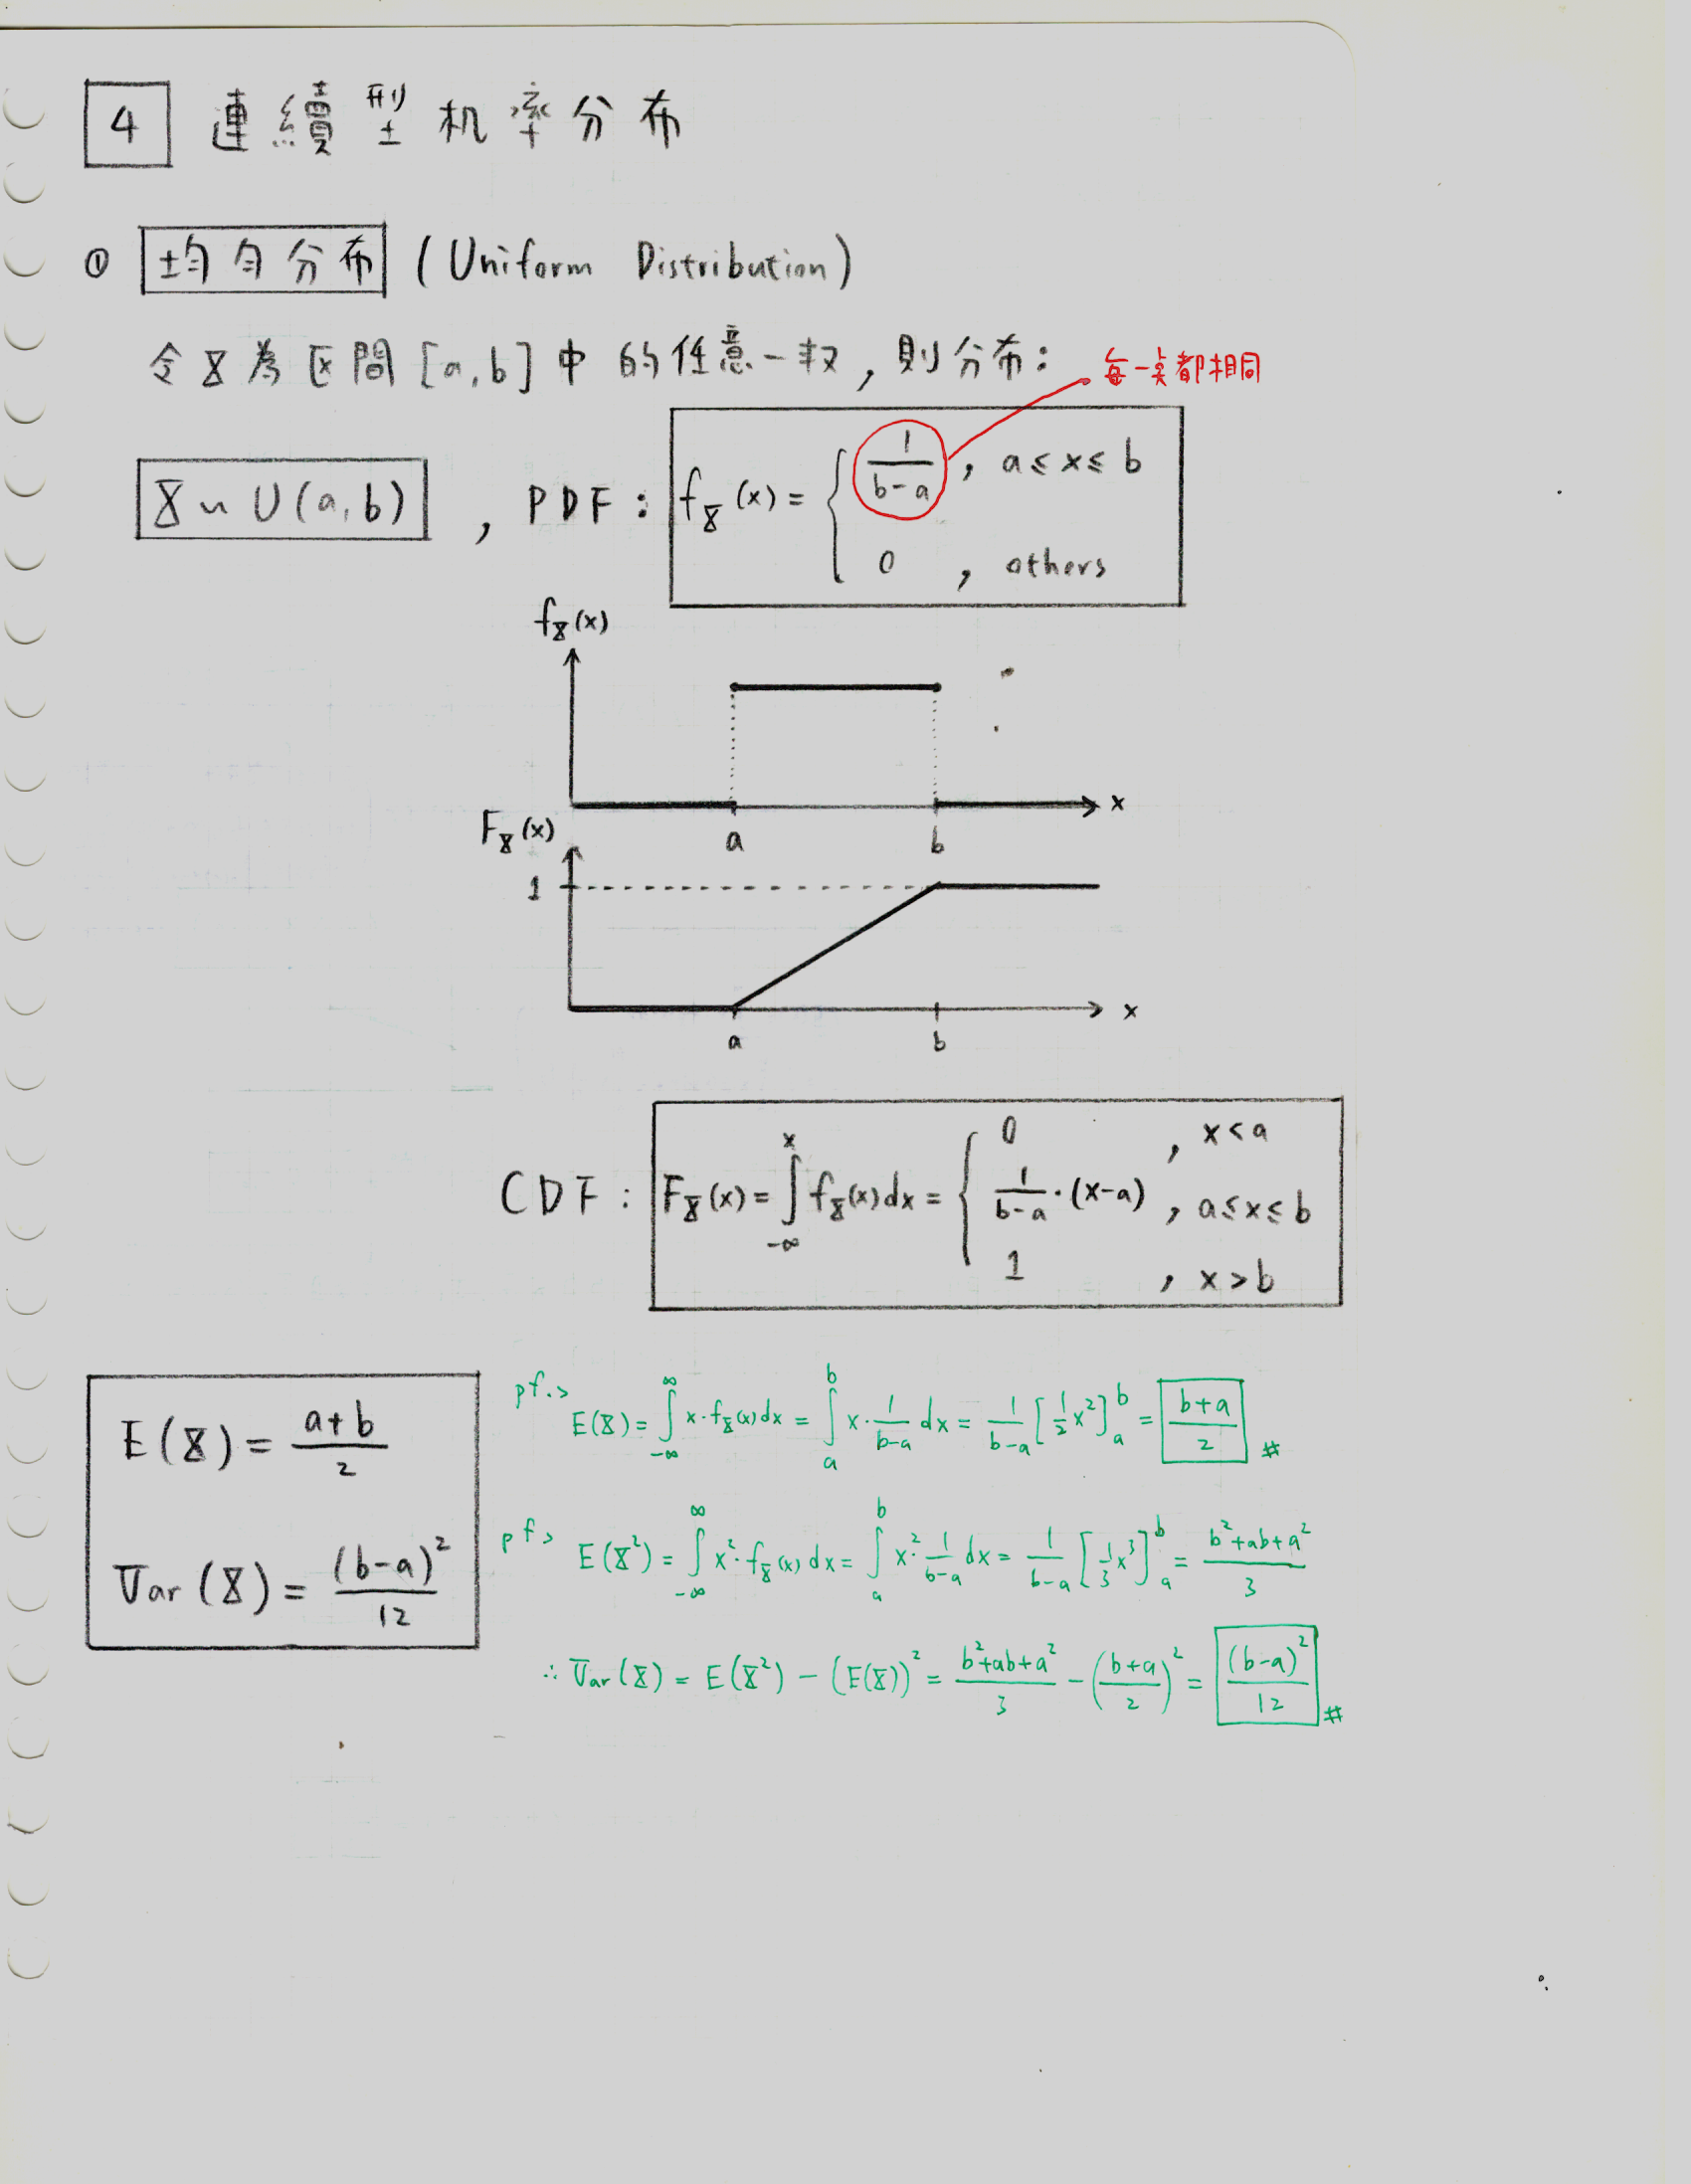 4 連續型机率分布
① 均勻分布 (Uniform Distribution)
令X為区間[a,b]中的任意一数,則分布:
每一点都相同
X ~ U(a,b) , PDF: f_X(x) = { 1/(b-a) , a ≤ x ≤ b
0 , others
f_X(x)
x
a b
F_X(x)
1
x
a b
CDF: F_X(x) = ∫_{-∞}^{x} f_X(x)dx = { 0 , x < a
1/(b-a)·(x-a) , a ≤ x ≤ b
1 , x > b
E(X) = (a+b)/2
Var(X) = (b-a)²/12
pf.> E(X) = ∫_{-∞}^{∞} x·f_X(x)dx = ∫_a^b x·1/(b-a) dx = 1/(b-a) [1/2 x²]_a^b = (b+a)/2 #
pf> E(X²) = ∫_{-∞}^{∞} x²·f_X(x)dx = ∫_a^b x²·1/(b-a) dx = 1/(b-a) [1/3 x³]_a^b = (b²+ab+a²)/3
∴ Var(X) = E(X²) - (E(X))² = (b²+ab+a²)/3 - ((b+a)/2)² = (b-a)²/12 #